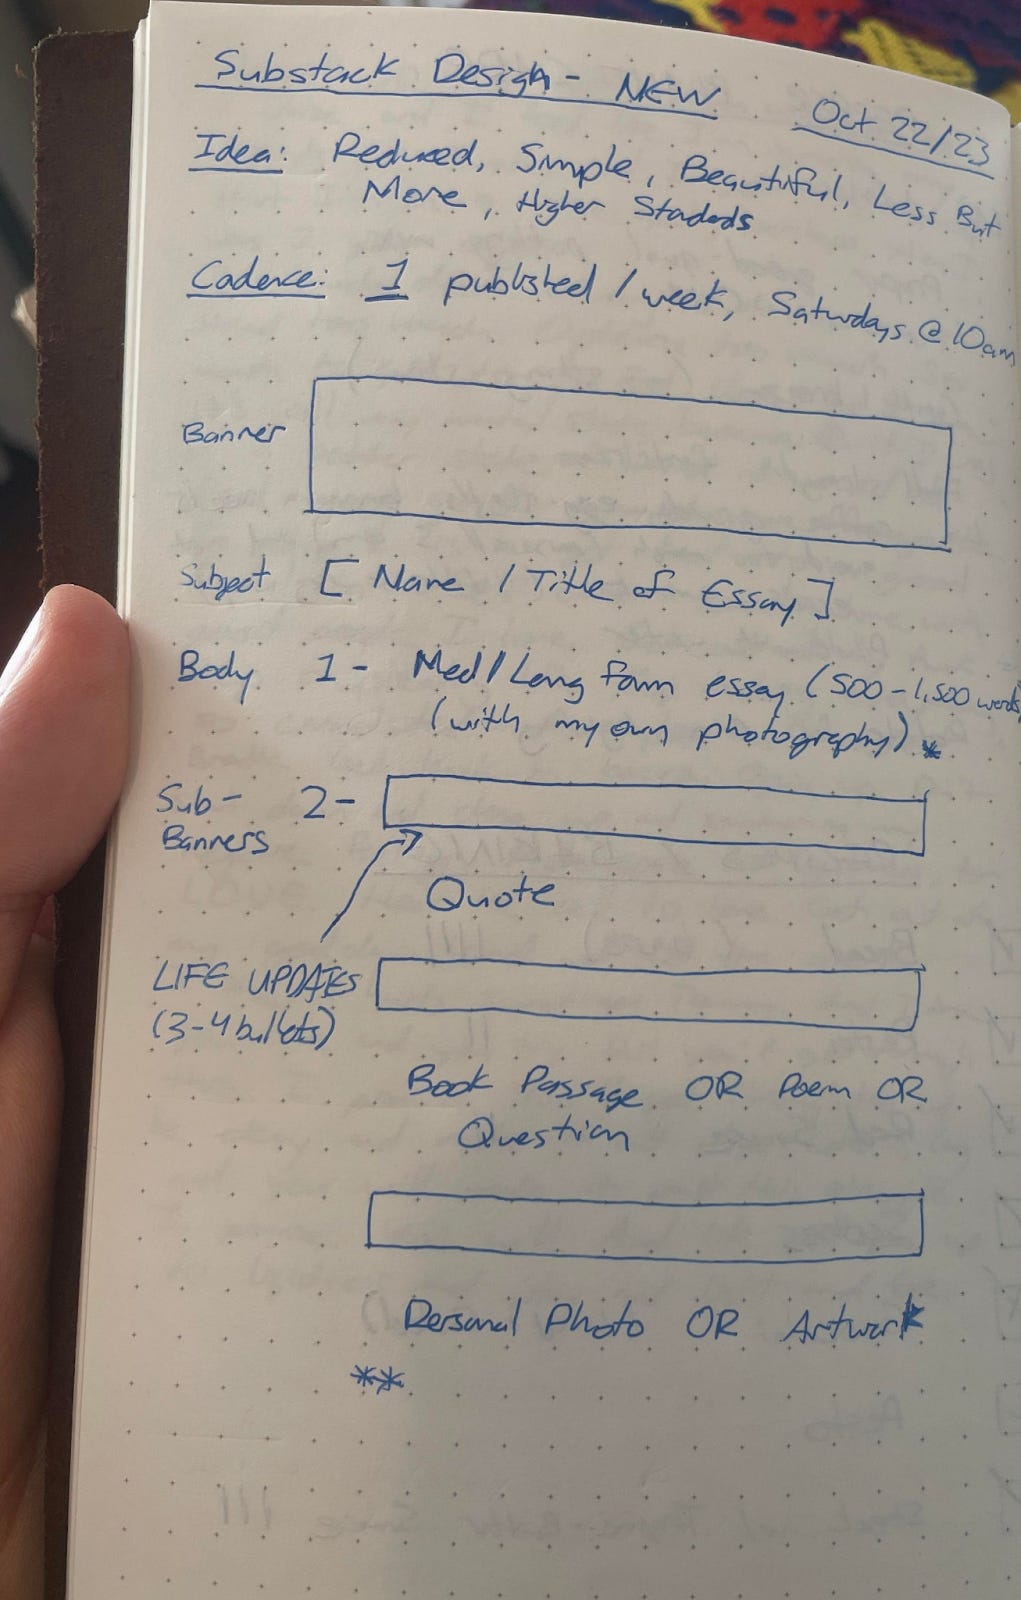 Substack Design - NEW
Oct 22/23
Idea: Reduced, Simple, Beautiful, Less But
More, Higher Stadads
Cadence: 1 published / week, Saturdays @ 10am
Banner
Subject [Name / Title of Essay]
Body 1 - Med / Long form essay (500 - 1,500 words)
(with my own photography) *
Sub- 2 -
Banners
Quote
LIFE UPDATES
(3-4 bullets)
Book Passage OR Poem OR
Question
Personal Photo OR Artwork
**